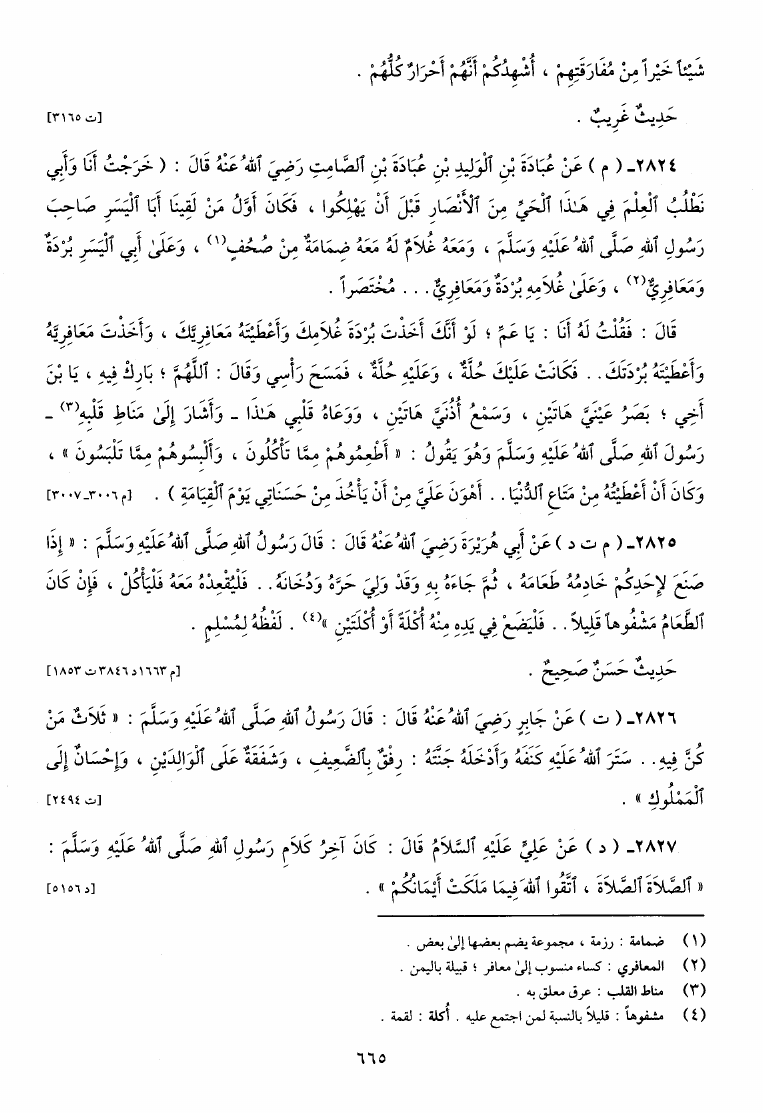 شَيْئاً خَيْراً مِنْ مُفَارَقَتِهِمْ ، أُشْهِدُكُمْ أَنَّهُمْ أَحْرَارٌ كُلُّهُمْ .
حَدِيثٌ غَرِيبٌ . [ت ٣١٦٥]
٢٨٢٤ـ ( م ) عَنْ عُبَادَةَ بْنِ ٱلْوَلِيدِ بْنِ عُبَادَةَ بْنِ ٱلصَّامِتِ رَضِيَ ٱللهُ عَنْهُ قَالَ : ( خَرَجْتُ أَنَا وَأَبِي
نَطْلُبُ ٱلْعِلْمَ فِي هَـٰذَا ٱلْحَيِّ مِنَ ٱلأَنْصَارِ قَبْلَ أَنْ يَهْلِكُوا ، فَكَانَ أَوَّلُ مَنْ لَقِينَا أَبَا ٱلْيَسَرِ صَاحِبَ
رَسُولِ ٱللهِ صَلَّى ٱللهُ عَلَيْهِ وَسَلَّمَ ، وَمَعَهُ غُلاَمٌ لَهُ مَعَهُ ضِمَامَةٌ مِنْ صُحُفٍ(١) ، وَعَلَىٰ أَبِي ٱلْيَسَرِ بُرْدَةٌ
وَمَعَافِرِيٌّ(٢) ، وَعَلَىٰ غُلاَمِهِ بُرْدَةٌ وَمَعَافِرِيٌّ. . . مُخْتَصَراً .
قَالَ : فَقُلْتُ لَهُ أَنَا : يَا عَمِّ ؛ لَوْ أَنَّكَ أَخَذْتَ بُرْدَةَ غُلاَمِكَ وَأَعْطَيْتَهُ مَعَافِرِيَّكَ ، وَأَخَذْتَ مَعَافِرِيَّهُ
وَأَعْطَيْتَهُ بُرْدَتَكَ. . فَكَانَتْ عَلَيْكَ حُلَّةٌ ، وَعَلَيْهِ حُلَّةٌ ، فَمَسَحَ رَأْسِي وَقَالَ : ٱللَّهُمَّ ؛ بَارِكْ فِيهِ ، يَا بْنَ
أَخِي ؛ بَصَرُ عَيْنَيَّ هَاتَيْنِ ، وَسَمْعُ أُذُنَيَّ هَاتَيْنِ ، وَوَعَاهُ قَلْبِي هَـٰذَا ـ وَأَشَارَ إِلَىٰ مَنَاطِ قَلْبِهِ(٣) ـ
رَسُولَ ٱللهِ صَلَّى ٱللهُ عَلَيْهِ وَسَلَّمَ وَهُوَ يَقُولُ : « أَطْعِمُوهُمْ مِمَّا تَأْكُلُونَ ، وَأَلْبِسُوهُمْ مِمَّا تَلْبَسُونَ » ،
وَكَانَ أَنْ أَعْطَيْتُهُ مِنْ مَتَاعِ ٱلدُّنْيَا. . أَهْوَنَ عَلَيَّ مِنْ أَنْ يَأْخُذَ مِنْ حَسَنَاتِي يَوْمَ ٱلْقِيَامَةِ ) . [م ٣٠٠٦ـ٣٠٠٧]
٢٨٢٥ـ ( م ت د ) عَنْ أَبِي هُرَيْرَةَ رَضِيَ ٱللهُ عَنْهُ قَالَ : قَالَ رَسُولُ ٱللهِ صَلَّى ٱللهُ عَلَيْهِ وَسَلَّمَ : « إِذَا
صَنَعَ لِأَحَدِكُمْ خَادِمُهُ طَعَامَهُ ، ثُمَّ جَاءَهُ بِهِ وَقَدْ وَلِيَ حَرَّهُ وَدُخَانَهُ. . فَلْيُقْعِدْهُ مَعَهُ فَلْيَأْكُلْ ، فَإِنْ كَانَ
ٱلطَّعَامُ مَشْفُوهاً قَلِيلاً. . فَلْيَضَعْ فِي يَدِهِ مِنْهُ أُكْلَةً أَوْ أُكْلَتَيْنِ »(٤) . لَفْظُهُ لِمُسْلِمٍ .
حَدِيثٌ حَسَنٌ صَحِيحٌ . [م ١٦٦٣د ٣٨٤٦ت ١٨٥٣]
٢٨٢٦ـ ( ت ) عَنْ جَابِرٍ رَضِيَ ٱللهُ عَنْهُ قَالَ : قَالَ رَسُولُ ٱللهِ صَلَّى ٱللهُ عَلَيْهِ وَسَلَّمَ : « ثَلاَثٌ مَنْ
كُنَّ فِيهِ. . سَتَرَ ٱللهُ عَلَيْهِ كَنَفَهُ وَأَدْخَلَهُ جَنَّتَهُ : رِفْقٌ بِٱلضَّعِيفِ ، وَشَفَقَةٌ عَلَى ٱلْوَالِدَيْنِ ، وَإِحْسَانٌ إِلَى
ٱلْمَمْلُوكِ » . [ت ٢٤٩٤]
٢٨٢٧ـ ( د ) عَنْ عَلِيٍّ عَلَيْهِ ٱلسَّلاَمُ قَالَ : كَانَ آخِرُ كَلاَمِ رَسُولِ ٱللهِ صَلَّى ٱللهُ عَلَيْهِ وَسَلَّمَ :
« ٱلصَّلاَةَ ٱلصَّلاَةَ ، ٱتَّقُوا ٱللهَ فِيمَا مَلَكَتْ أَيْمَانُكُمْ » . [د ٥١٥٦]
(١) ضمامة : رزمة ، مجموعة يضم بعضها إلىٰ بعض .
(٢) المعافري : كساء منسوب إلىٰ معافر ؛ قبيلة باليمن .
(٣) مناط القلب : عرق معلق به .
(٤) مشفوهاً : قليلاً بالنسبة لمن اجتمع عليه . أُكلة : لقمة .
٦٦٥